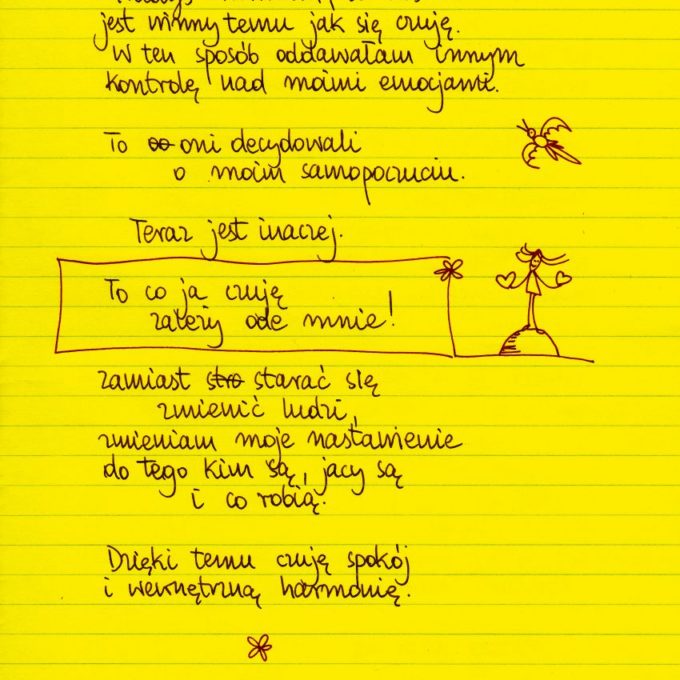 jest winny temu jak się czuję.
W ten sposób oddawałam innym
kontrolę nad moimi emocjami.
To oni decydowali
o moim samopoczuciu.
Teraz jest inaczej.
To co ja czuję
zależy ode mnie!
zamiast starać się
zmienić ludzi,
zmieniam moje nastawienie
do tego kim są, jacy są
i co robią.
Dzięki temu czuję spokój
i wewnętrzną harmonię.